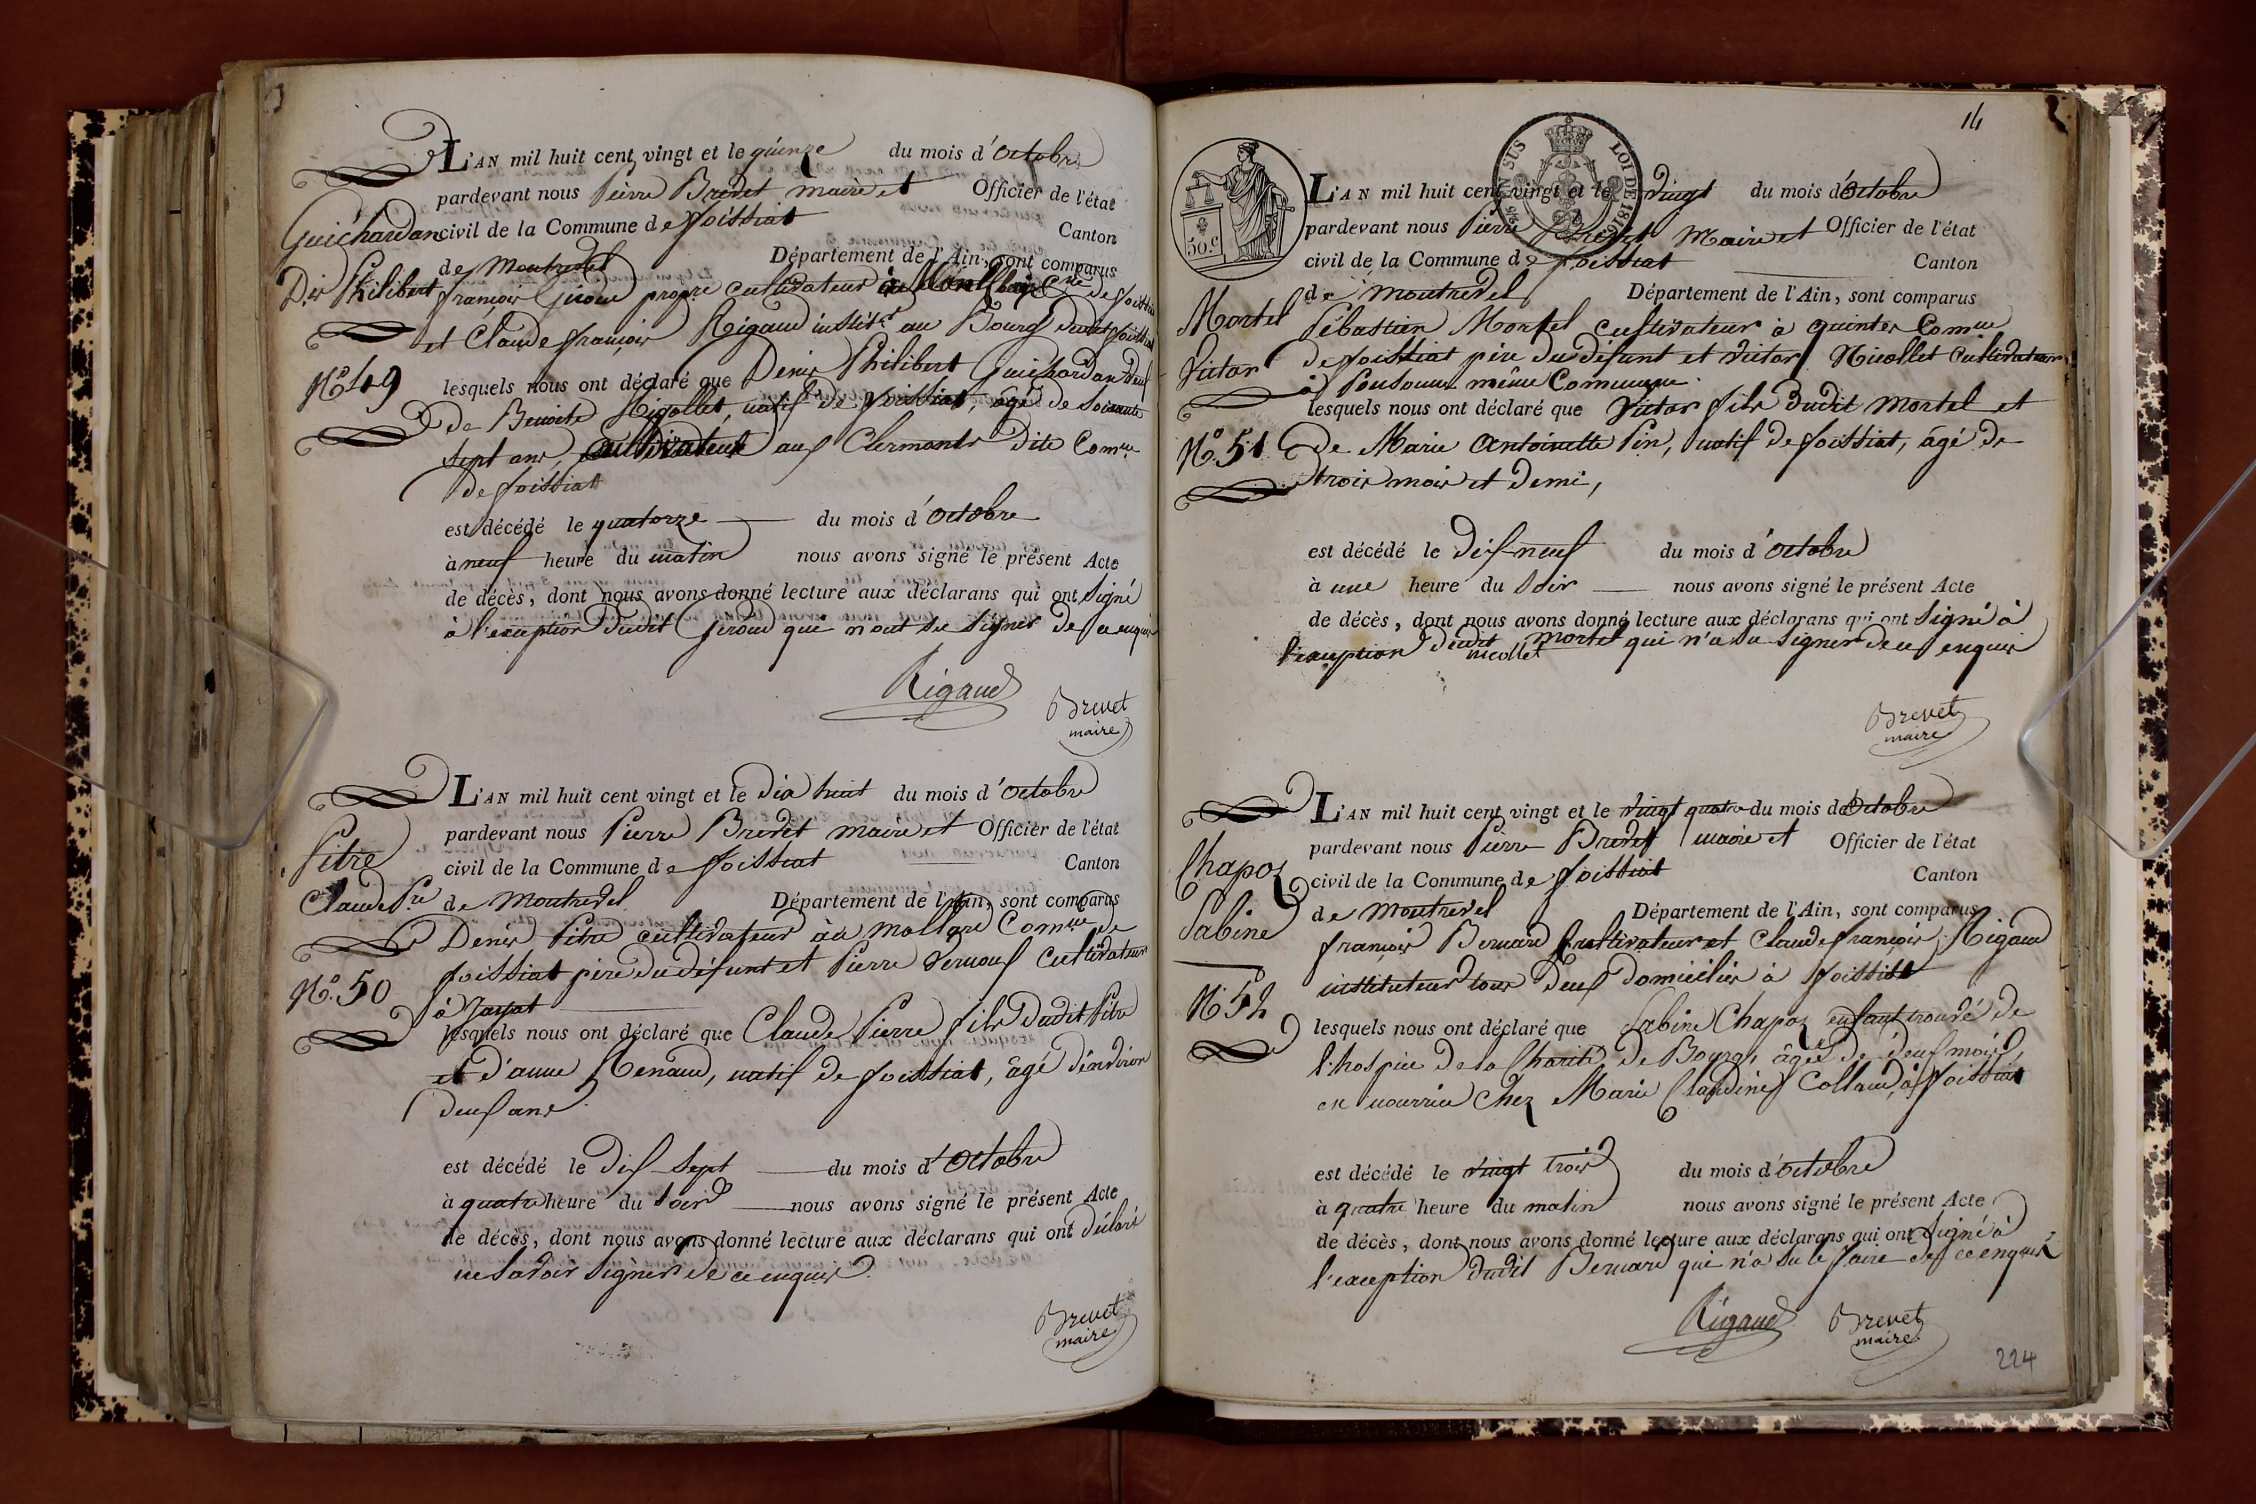 L'AN mil huit cent vingt et le quinze du mois d'Octobre
pardevant nous Pierre Brevet maire et Officier de l'état
civil de la Commune de foissiat Canton
de montrevel Département de l'Ain, sont comparus
françois Giroud propre cultivateur Cne de foissiat
et Claude françois Rigaud instit.r au Bourg dudit foissiat
lesquels nous ont déclaré que Denis Philibert Guichardan veuf
de Benoite Rigollet, natif de foissiat, âgé de soixante
sept ans, cultivateur aux Clermonts dite Comue
de foissiat
est décédé le quatorze du mois d'Octobre
à neuf heure du matin nous avons signé le présent Acte
de décès, dont nous avons donné lecture aux déclarans qui ont signé
à l'exception dudit Giroud qui n'ont su signer de ce enquis
Rigaud
Brevet
maire
Guichardan
Dis Philibert
No. 49
L'AN mil huit cent vingt et le dix huit du mois d'Octobre
pardevant nous Pierre Brevet maire et Officier de l'état
civil de la Commune de foissiat Canton
de montrevel Département de l'Ain, sont comparus
Denis Pitre cultivateur au mollard Comue de
foissiat père du défunt et Pierre Vernoux cultivateur
à Jayat
lesquels nous ont déclaré que Claude Pierre fils dudit Pitre
et d'anne Renaud, natif de foissiat, âgé d'environ
deux ans.
est décédé le dix-sept du mois d'Octobre
à quatre heure du soir nous avons signé le présent Acte
de décès, dont nous avons donné lecture aux déclarans qui ont déclaré
ne savoir signer de ce enquis.
Brevet
maire
Pitre
Claude Pre
No. 50
14
SUS LOI DE 1816
50.c
L'AN mil huit cent vingt et le vingt du mois d'Octobre
pardevant nous Pierre Brevet Maire et Officier de l'état
civil de la Commune de foissiat Canton
de montrevel Département de l'Ain, sont comparus
Sébastien Mortel cultivateur à quintes Comue
de foissiat père du défunt et victor Nicollet cultivateur
à Ponsome même Commune.
lesquels nous ont déclaré que Victor fils dudit mortel et
de Marie Antoinette Pin, natif de foissiat, âgé de
trois mois et demi,
est décédé le dix-neuf du mois d'Octobre
à une heure du soir nous avons signé le présent Acte
de décès, dont nous avons donné lecture aux déclarans qui ont signé à
l'exception dudit mortel nicollet qui n'a su signer de ce enquis
Brevet
maire
Mortel
Victor
No. 51
L'AN mil huit cent vingt et le vingt quatre du mois d'Octobre
pardevant nous Pierre Brevet maire et Officier de l'état
civil de la Commune de foissiat Canton
de montrevel Département de l'Ain, sont comparus
françois Bernard cultivateur et Claude françois Rigaud
instituteur tous deux domiciliés à foissiat
lesquels nous ont déclaré que Sabine Chapoz enfant trouvé de
l'hospice de la Charité de Bourg, âgée de deux mois,
en nourrice Chez Marie Claudine Colland, à foissiat
est décédé le vingt trois du mois d'octobre
à quatre heure du matin nous avons signé le présent Acte
de décès, dont nous avons donné lecture aux déclarans qui ont signé à
l'exception dudit Bernard qui n'a su le faire de ce enquis
Rigaud
Brevet
maire
Chapoz
Sabine
No. 52
224